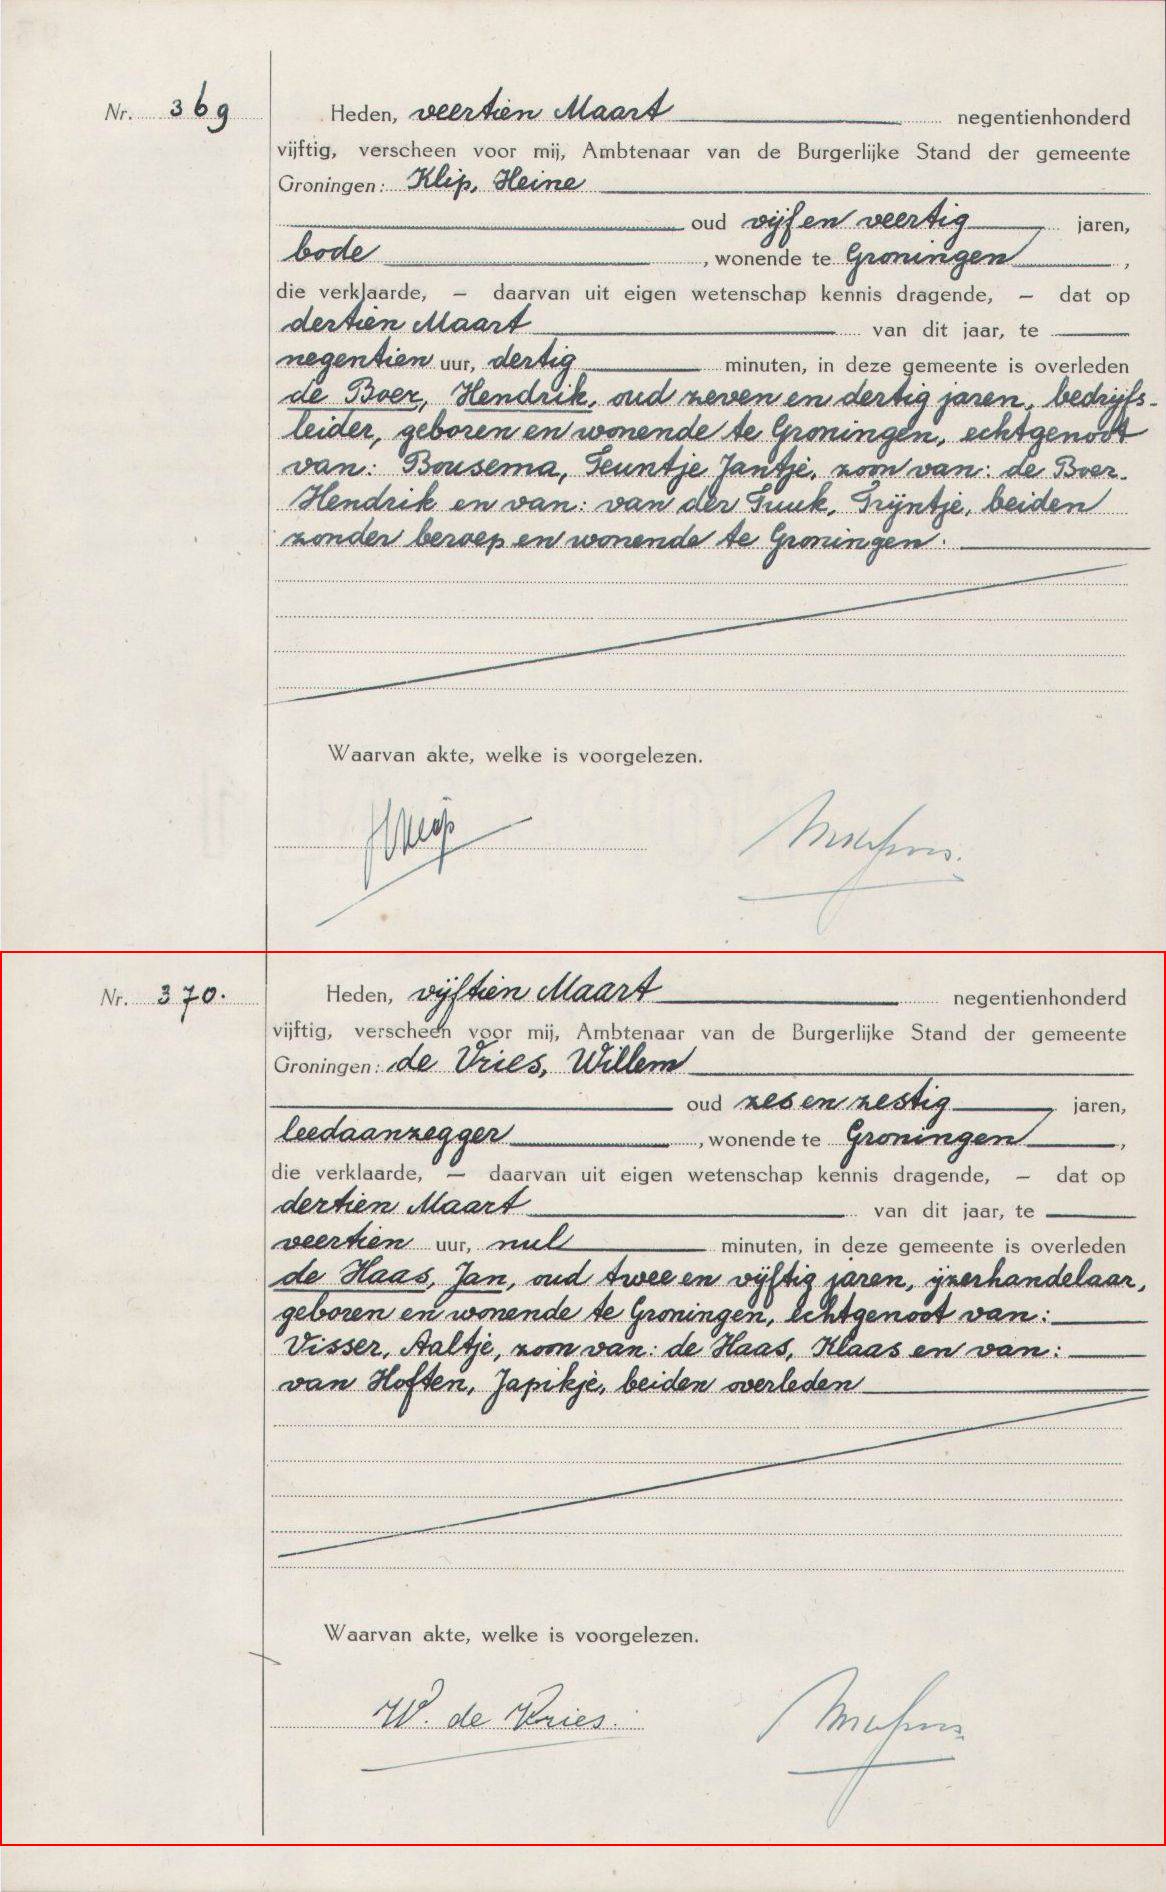 Nr. 369
Heden, veertien Maart negentienhonderd
vijftig, verscheen voor mij, Ambtenaar van de Burgerlijke Stand der gemeente
Groningen: Klip, Heine
oud vijf en veertig jaren,
bode, wonende te Groningen,
die verklaarde, — daarvan uit eigen wetenschap kennis dragende, — dat op
dertien Maart van dit jaar, te
negentien uur, dertig minuten, in deze gemeente is overleden
de Boer, Hendrik, oud zeven en dertig jaren, bedrijfs-
leider, geboren en wonende te Groningen, echtgenoot
van: Bousema, Teuntje Jantje, zoon van: de Boer.
Hendrik en van: van der Tuuk, Trijntje, beiden
zonder beroep en wonende te Groningen.
Waarvan akte, welke is voorgelezen.
HKlip
Nr. 370.
Heden, vijftien Maart negentienhonderd
vijftig, verscheen voor mij, Ambtenaar van de Burgerlijke Stand der gemeente
Groningen: de Vries, Willem
oud zes en zestig jaren,
leedaanzegger, wonende te Groningen,
die verklaarde, — daarvan uit eigen wetenschap kennis dragende, — dat op
dertien Maart van dit jaar, te
veertien uur, nul minuten, in deze gemeente is overleden
de Haas, Jan, oud twee en vijftig jaren, ijzerhandelaar,
geboren en wonende te Groningen, echtgenoot van:
Visser, Aaltje, zoon van: de Haas, Klaas en van:
van Hoften, Japikje, beiden overleden
Waarvan akte, welke is voorgelezen.
W. de Vries.